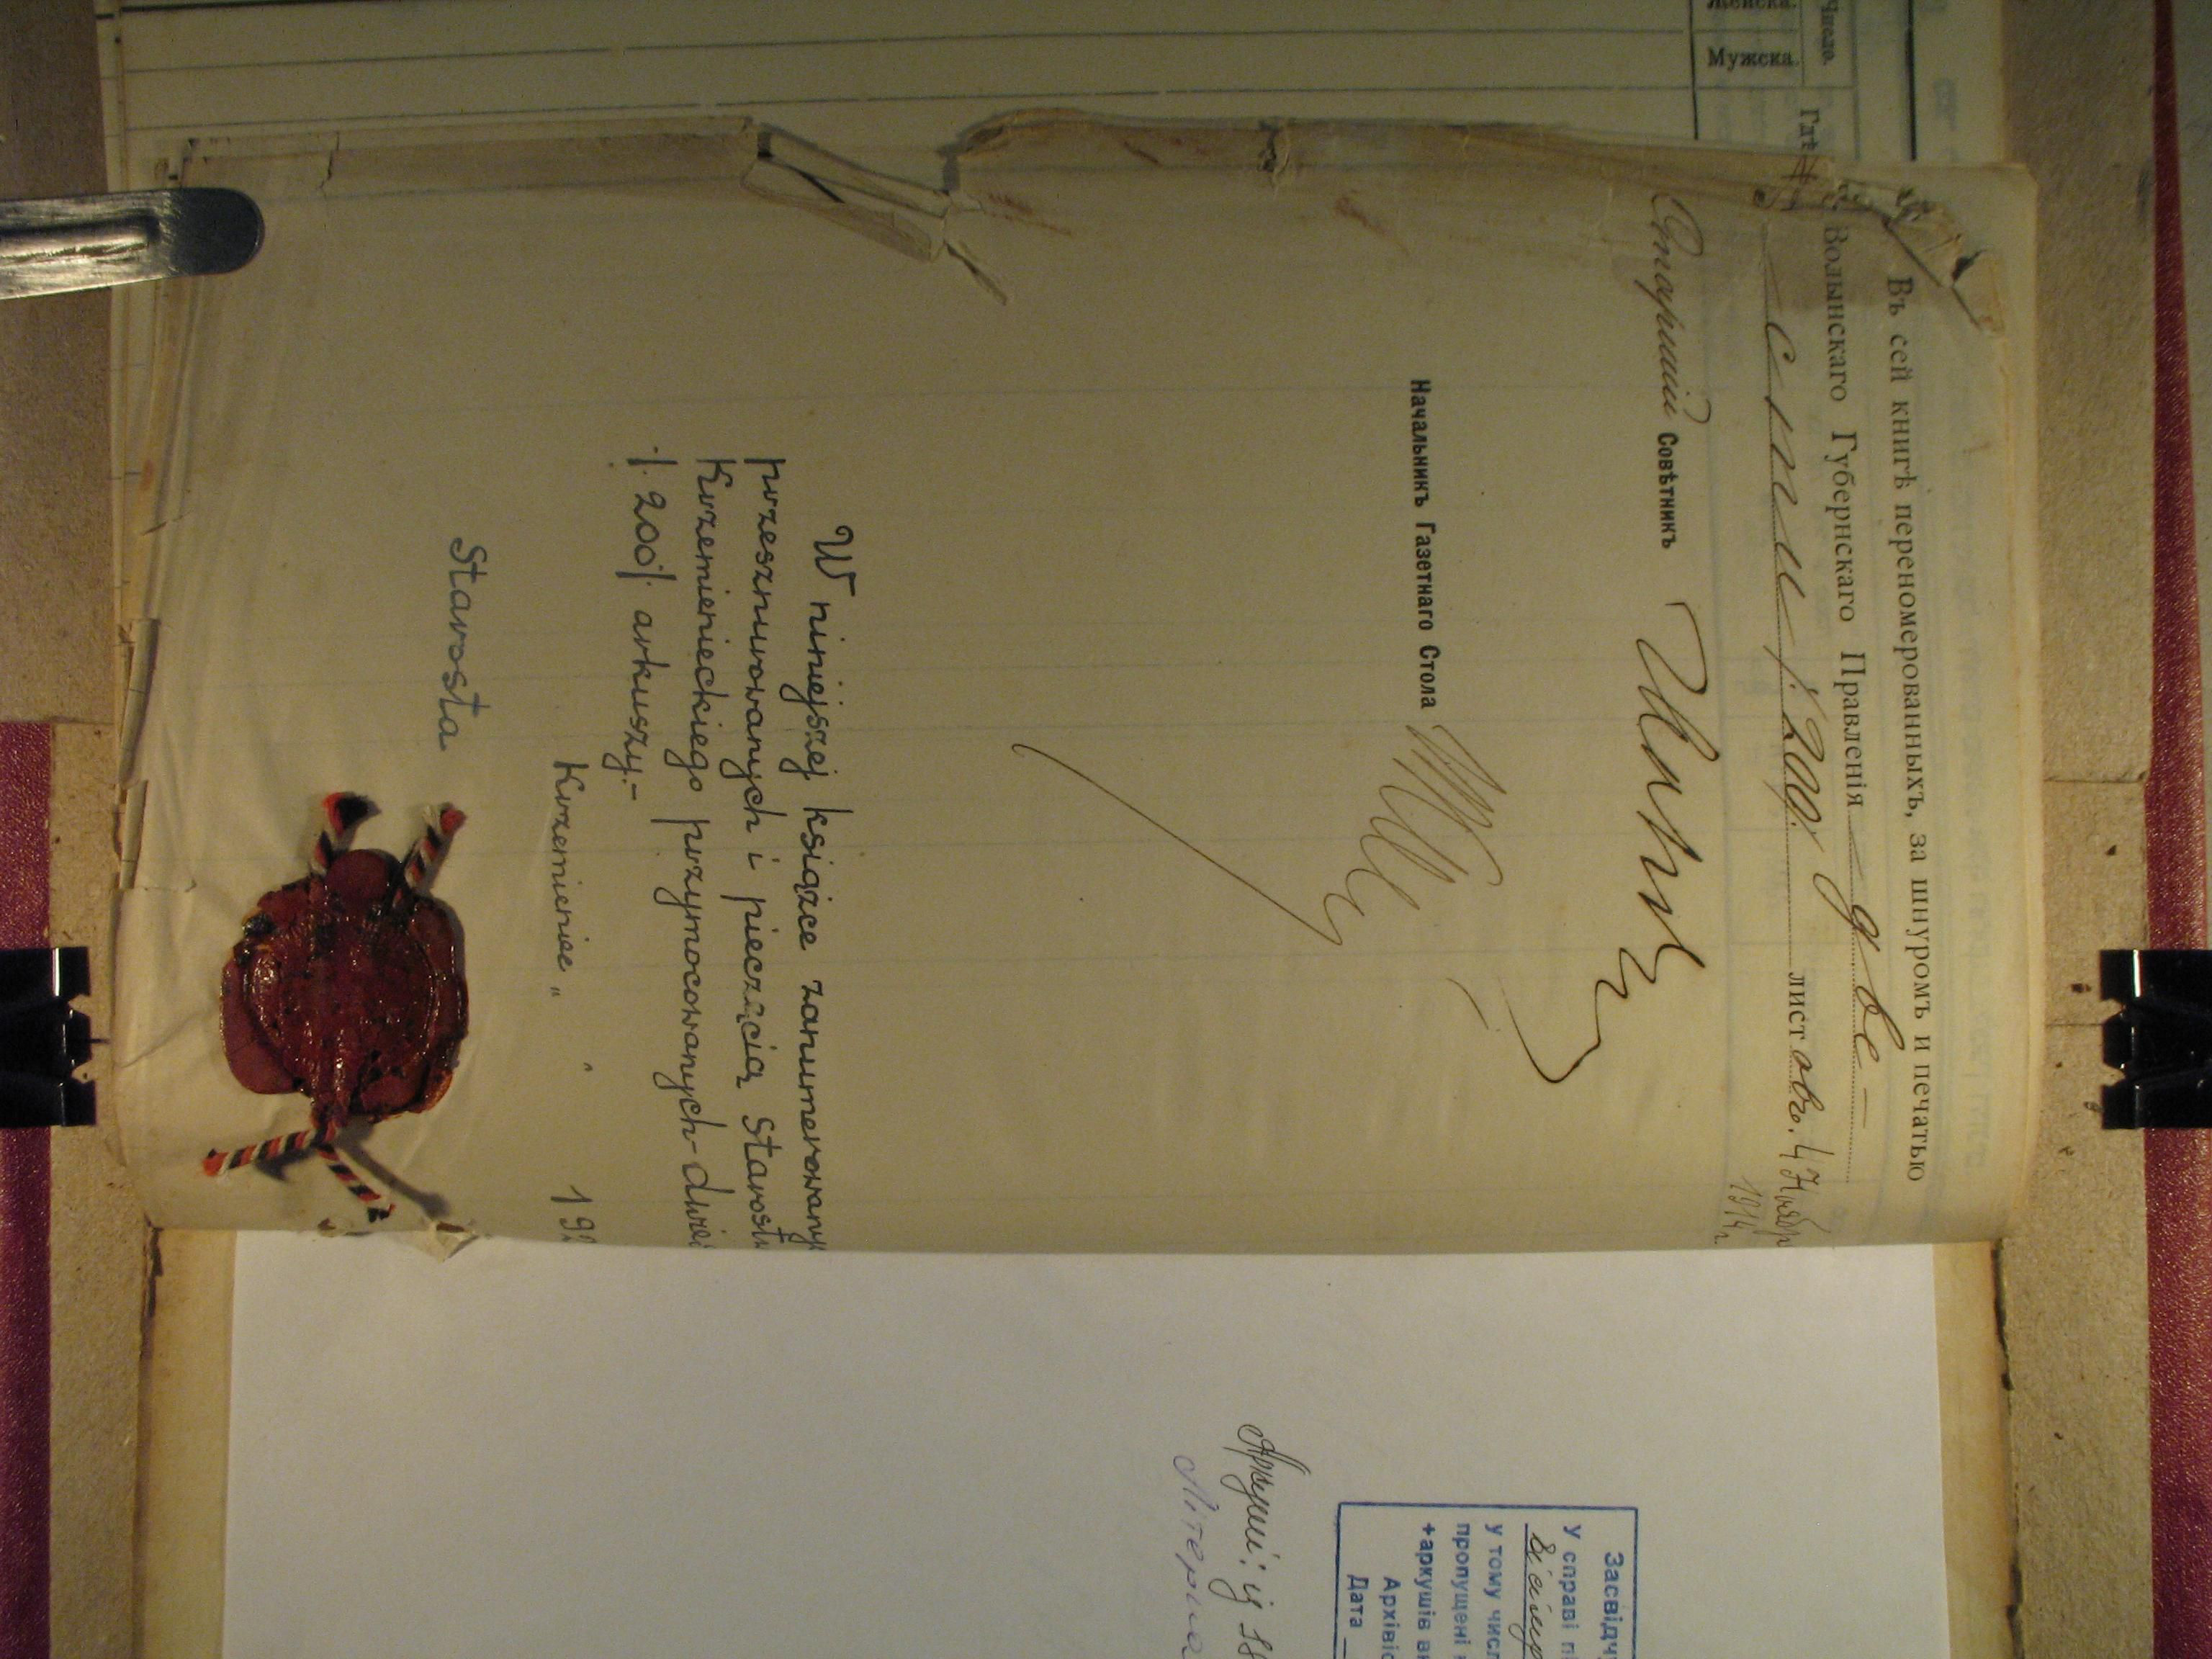 Женска.
Мужска.
Число.
Въ сей книгѣ переномерованныхъ, за шнуромъ и печатью
Волынскаго Губернскаго Правленія две -
сти /. 200 ./. листовъ. 4 Ноябр
1914 г.
Старшій Совѣтникъ
Начальникъ Газетнаго Стола
W niniejszej książce zanumerowany
przesznurowanych i pieczęcią Starost
Krzemienieckiego przymocowanych - dwie
·/· 200 ·/· arkuszy.-
Krzemieniec „ " 19
Starosta
Засвідч
У справі пі
у тому числ
пропущені
+аркушів вн
Архівіс
Дата
Аркуші: із
Літерна